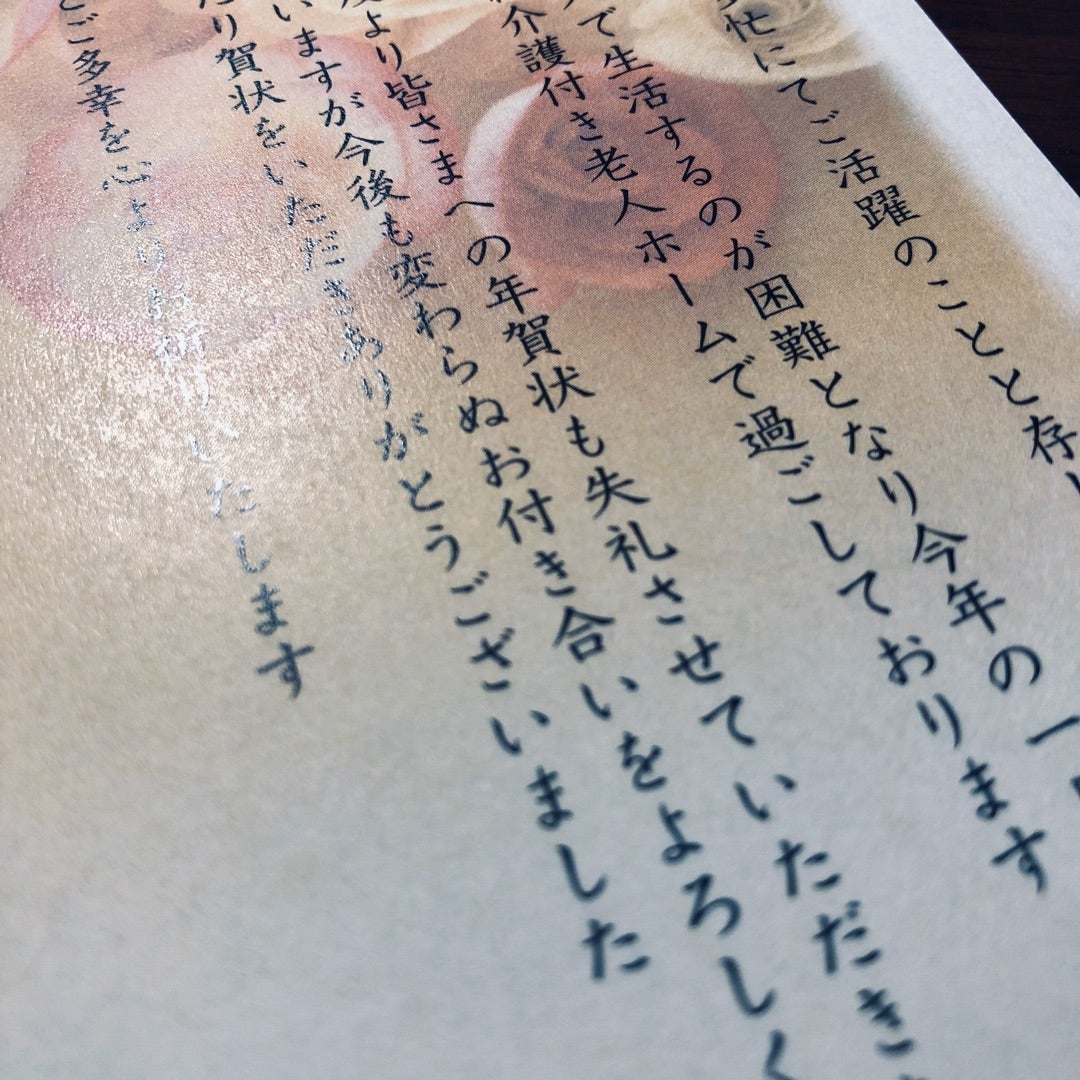 忙にてご活躍のことと存
で生活するのが困難となり今年の一
介護付き老人ホームで過ごしております
より皆さまへの年賀状も失礼させていただき
いますが今後も変わらぬお付き合いをよろしく
り賀状をいただきありがとうございました
とご多幸を心よりお祈りいたします